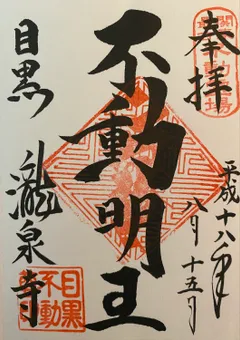 奉拝
平成十八年
八月十五日
不動明王
目黒
瀧泉寺
目黒
不動